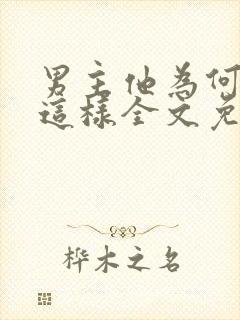 男主他為何
這樣全文免
桦木之名